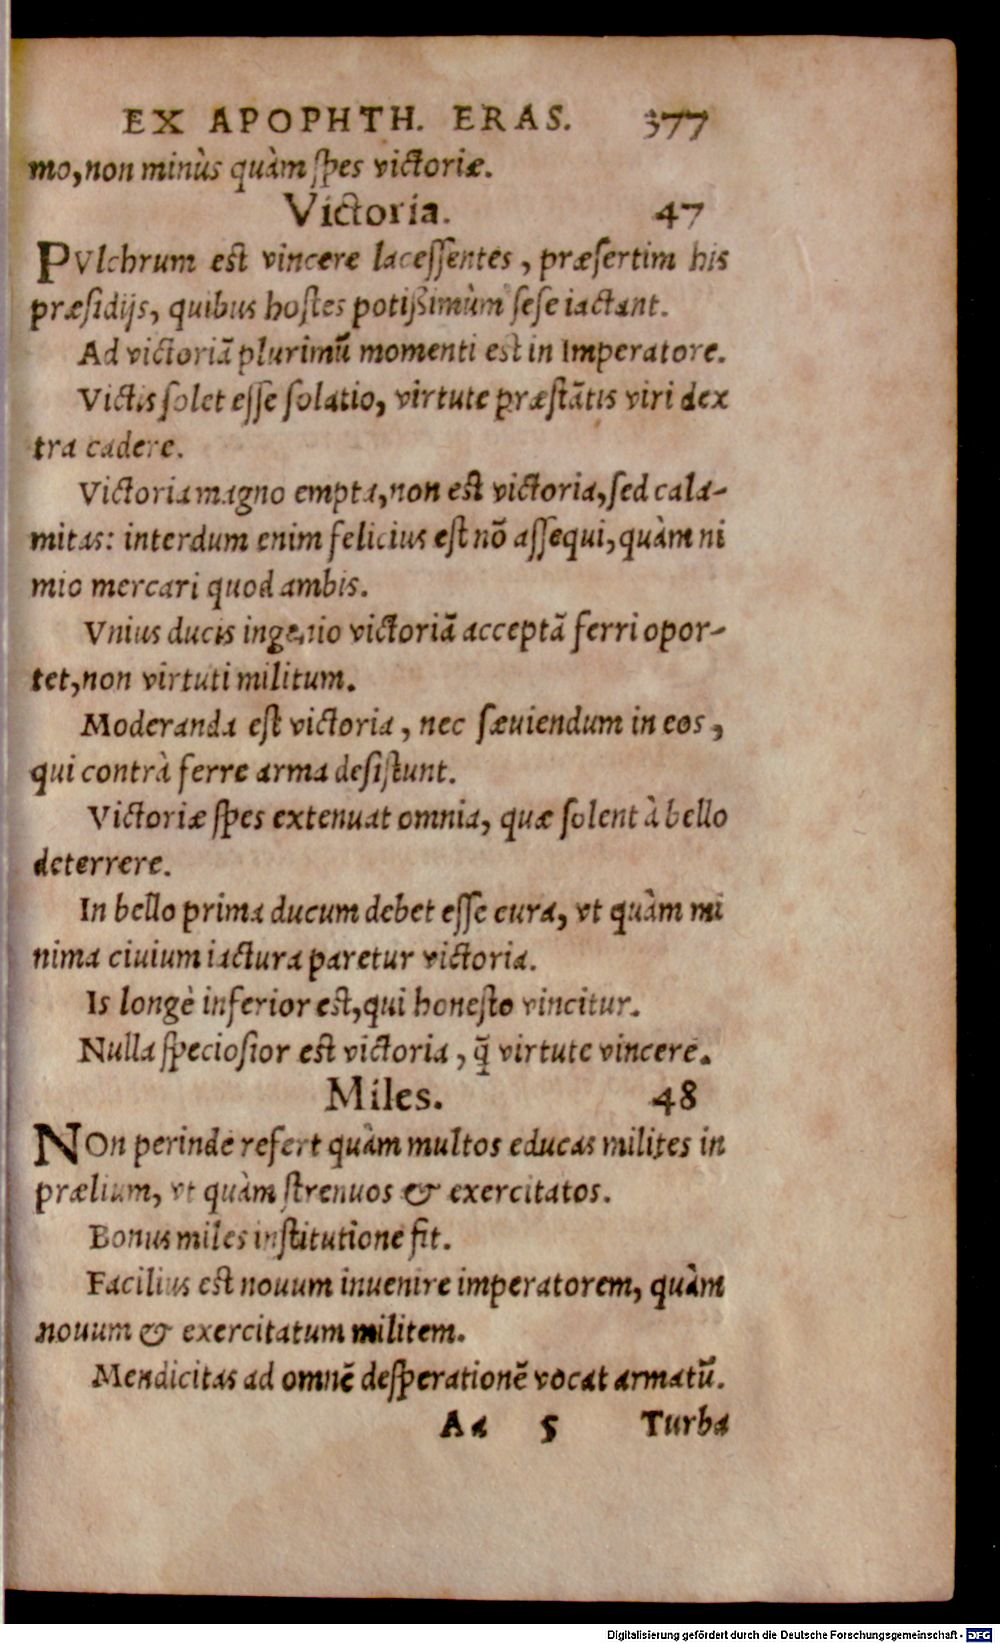 EX APOPHTH. ERAS. 377
mo, non minùs quàm spes victoriæ.
Victoria. 47
PVlchrum est vincere lacessentes, præsertim his
præsidijs, quibus hostes potißimùm sese iactant.
Ad victoriã plurimũ momenti est in Imperatore.
Victis solet esse solatio, virtute præstãtis viri dex
tra cadere.
Victoria magno empta, non est victoria, sed cala-
mitas: interdum enim felicius est nõ assequi, quàm ni
mio mercari quod ambis.
Vnius ducis ingenio victoriã acceptã ferri opor-
tet, non virtuti militum.
Moderanda est victoria, nec sæuiendum in eos,
qui contrà ferre arma desistunt.
Victoriæ spes extenuat omnia, quæ solent à bello
deterrere.
In bello prima ducum debet esse cura, vt quàm mi
nima ciuium iactura paretur victoria.
Is longè inferior est, qui honesto vincitur.
Nulla speciosior est victoria, q̃ virtute vincere.
Miles. 48
NOn perinde refert quàm multos educas milites in
prælium, vt quàm strenuos & exercitatos.
Bonus miles institutione fit.
Facilius est nouum inuenire imperatorem, quàm
nouum & exercitatum militem.
Mendicitas ad omnẽ desperationẽ vocat armatũ.
Aa 5 Turba
Digitalisierung gefördert durch die Deutsche Forschungsgemeinschaft - DFG